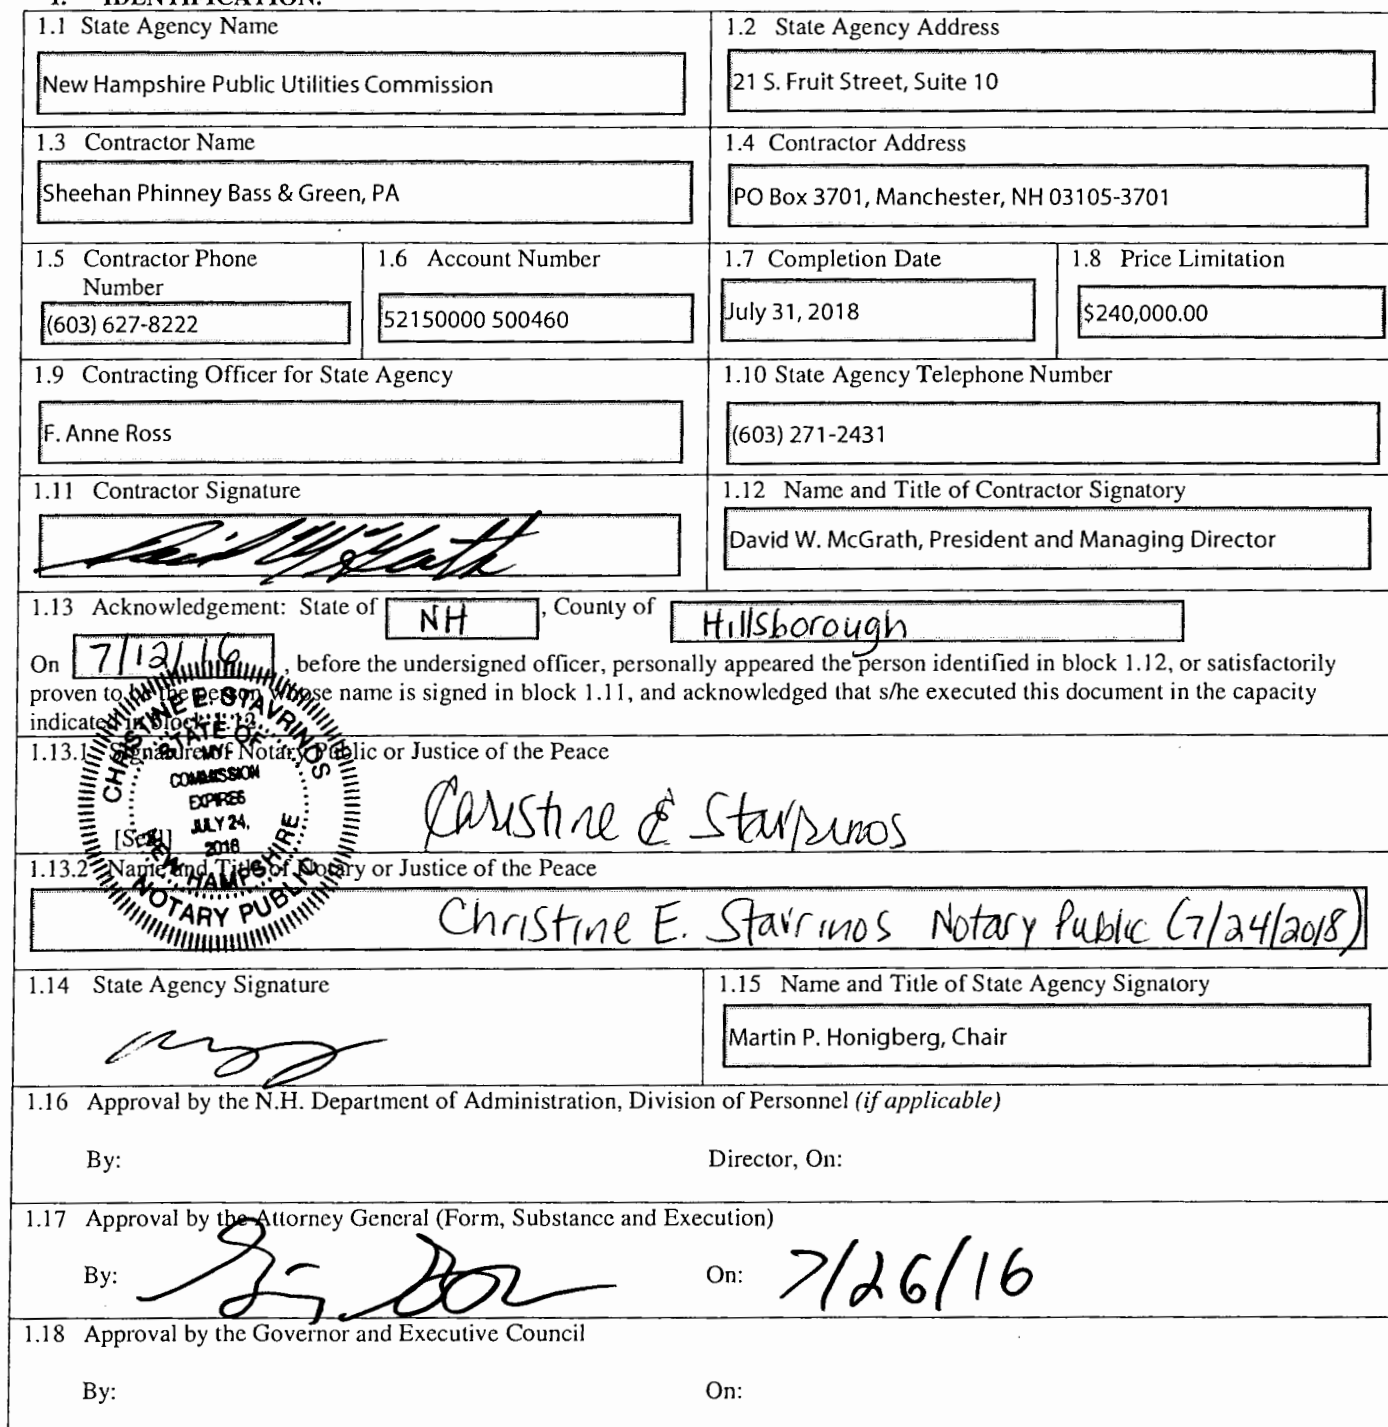 1. IDENTIFICATION.
1.1 State Agency Name
New Hampshire Public Utilities Commission
1.2 State Agency Address
21 S. Fruit Street, Suite 10
1.3 Contractor Name
Sheehan Phinney Bass & Green, PA
1.4 Contractor Address
PO Box 3701, Manchester, NH 03105-3701
1.5 Contractor Phone
Number
(603) 627-8222
1.6 Account Number
52150000 500460
1.7 Completion Date
July 31, 2018
1.8 Price Limitation
$240,000.00
1.9 Contracting Officer for State Agency
F. Anne Ross
1.10 State Agency Telephone Number
(603) 271-2431
1.11 Contractor Signature
1.12 Name and Title of Contractor Signatory
David W. McGrath, President and Managing Director
1.13 Acknowledgement: State of NH, County of Hillsborough
On 7/12/16, before the undersigned officer, personally appeared the person identified in block 1.12, or satisfactorily
proven to be the person whose name is signed in block 1.11, and acknowledged that s/he executed this document in the capacity
indicated in block 1.12.
1.13.1 Signature of Notary Public or Justice of the Peace
Christine E Stavrinos
[Seal]
CHRISTINE E. STAVRINOS
STATE OF
MY
COMMISSION
EXPIRES
JULY 24,
2018
NEW HAMPSHIRE
NOTARY PUBLIC
1.13.2 Name and Title of Notary or Justice of the Peace
Christine E. Stavrinos Notary Public (7/24/2018)
1.14 State Agency Signature
1.15 Name and Title of State Agency Signatory
Martin P. Honigberg, Chair
1.16 Approval by the N.H. Department of Administration, Division of Personnel (if applicable)
By:
Director, On:
1.17 Approval by the Attorney General (Form, Substance and Execution)
By:
On: 7/26/16
1.18 Approval by the Governor and Executive Council
By:
On: